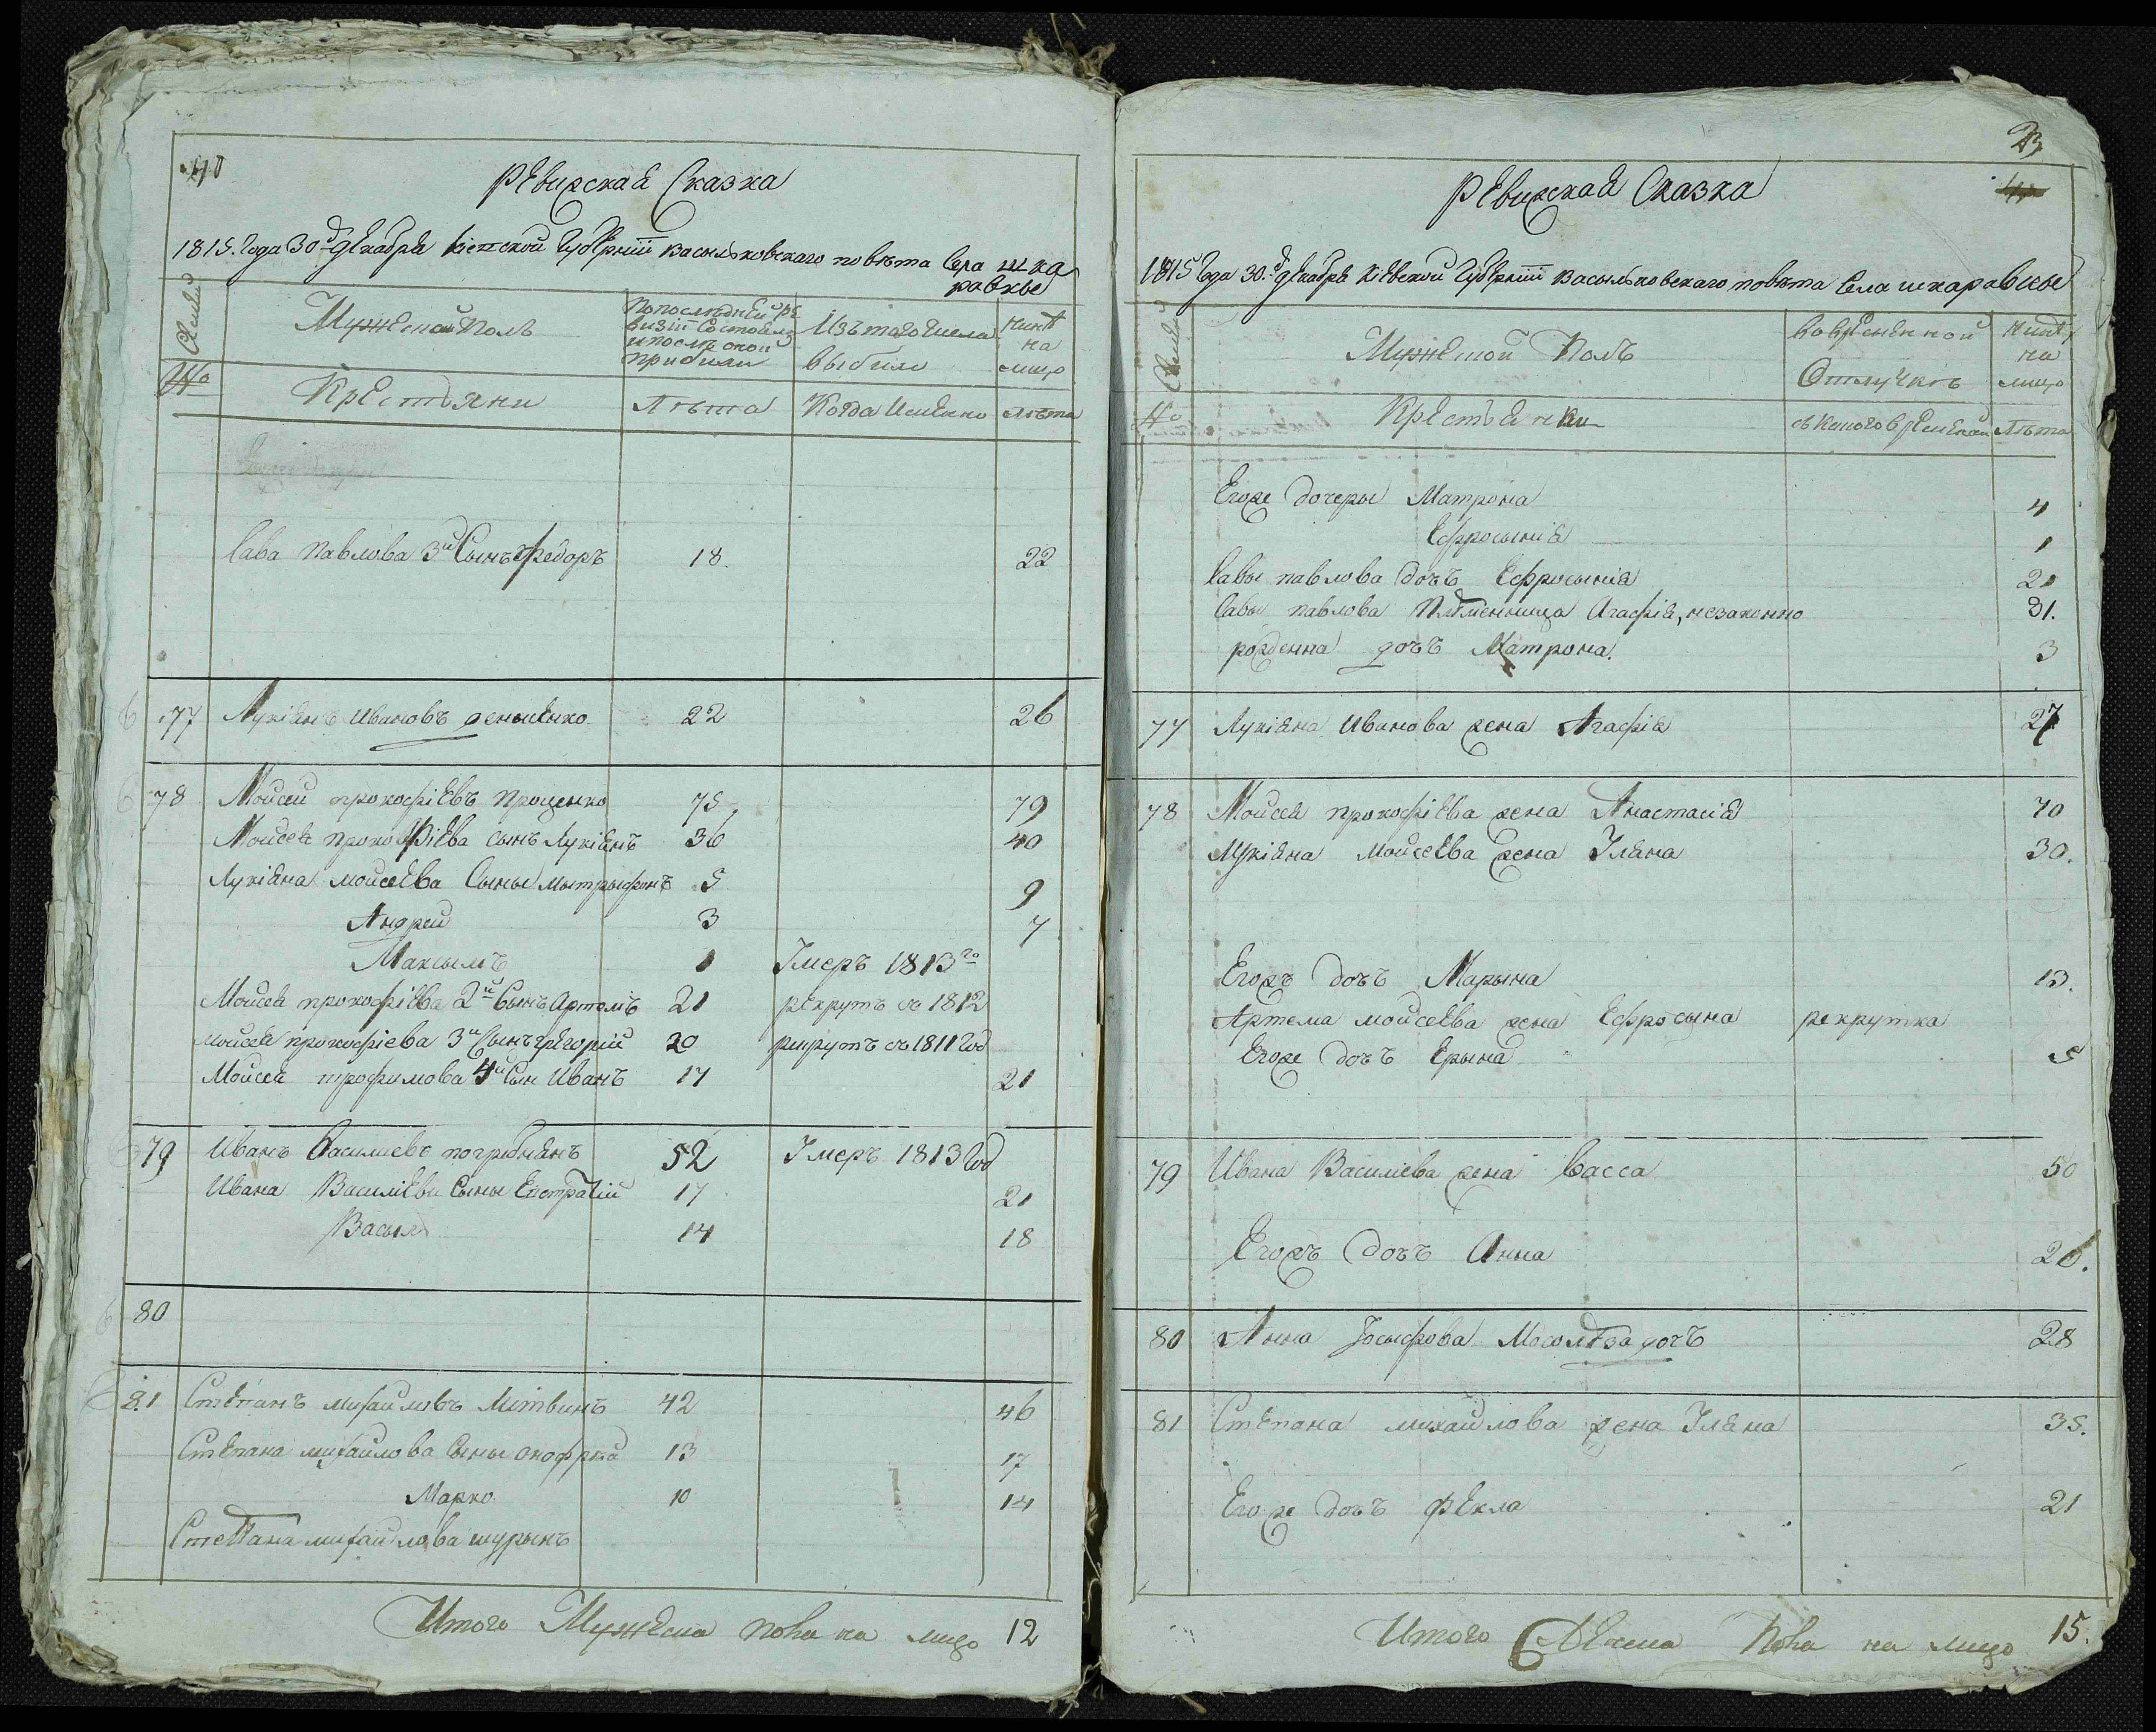 40
Ревизская Сказка
1815. Года 30д декабря Кіевской Губерніи Васильковскаго повѣта Села шка
равкы
Семьи
Мужеской Полъ
По последней ре
визіи состояло
и после оной
прибыли
Изъ того числа
выбыло
Нынѣ
на
лицо
№
Крестьяни
Лѣта
Когда Именно
Лѣта
Сава Павлова 3й Сынъ Федоръ 18. 22
77 Лукіянъ Ивановъ денысенко 22 26
78 Мойсей прокофіевъ Проценко 75 79
Мойсея прокофіева сынъ Лукіянъ 36 40
Лукіяна мойсеева Сыны Мытрыфонъ 5 9
Андрей 3 7
Максымъ 1 Умеръ 1813го
Мойсея прокофіева 2й Сынъ Артемъ 21 рекрутъ съ 1812
мойсея прокофіева 3й Сынъ григорій 20 рекрутъ съ 1811 Год
Мойсея трофимова 4й Сын Иванъ 17 21
79 Иванъ Василиевъ погребнянъ 52 Умеръ 1813 Год
Ивана Василіева Сыны Евстратій 17 21
Васыль 14 18
80
81 Степанъ михайловъ Литвинъ 42 46
Степана михайлова Сыны онофрей 13 17
Марко 10 14
Степана михайлова шурынъ
Итого Мужеска пола на лицо 12
23
Ревизская Сказка
1815 Года 30.д декабря Кіевской Губерніи Васыльковскаго повѣта Села шкаравкы
Семьи
Мужеской Полъ
Во временной
Отлучкѣ
Нынѣ
на
лицо
№
Крестьянки
съ какого времени
Лѣта
Егоже дочеры Матрона 4
Ефросынія 1
Савы павлова дочъ Ефросынія 20
Савы павлова Племенница Агафія, незаконно 31.
рожденна дочъ Матрона. 3
77 Лукіяна Иванова жена Агафія 27
78 Мойсея прокофіева жена Анастасія 70
Лукіяна мойсеева жена Уляна 30.
Егожъ дочъ Марына 13.
Артема мойсеева жена Ефросына рекрутка
Егоже дочъ Ерына 5
79 Ивана Василіева жена Васса 50
Егожъ дочъ Анна 26.
80 Анна Іосыфова дочъ 28
81 Степана михайлова жена Уляна 35.
Егоже дочъ Фекла 21
Итого Женска Пола на лицо 15.